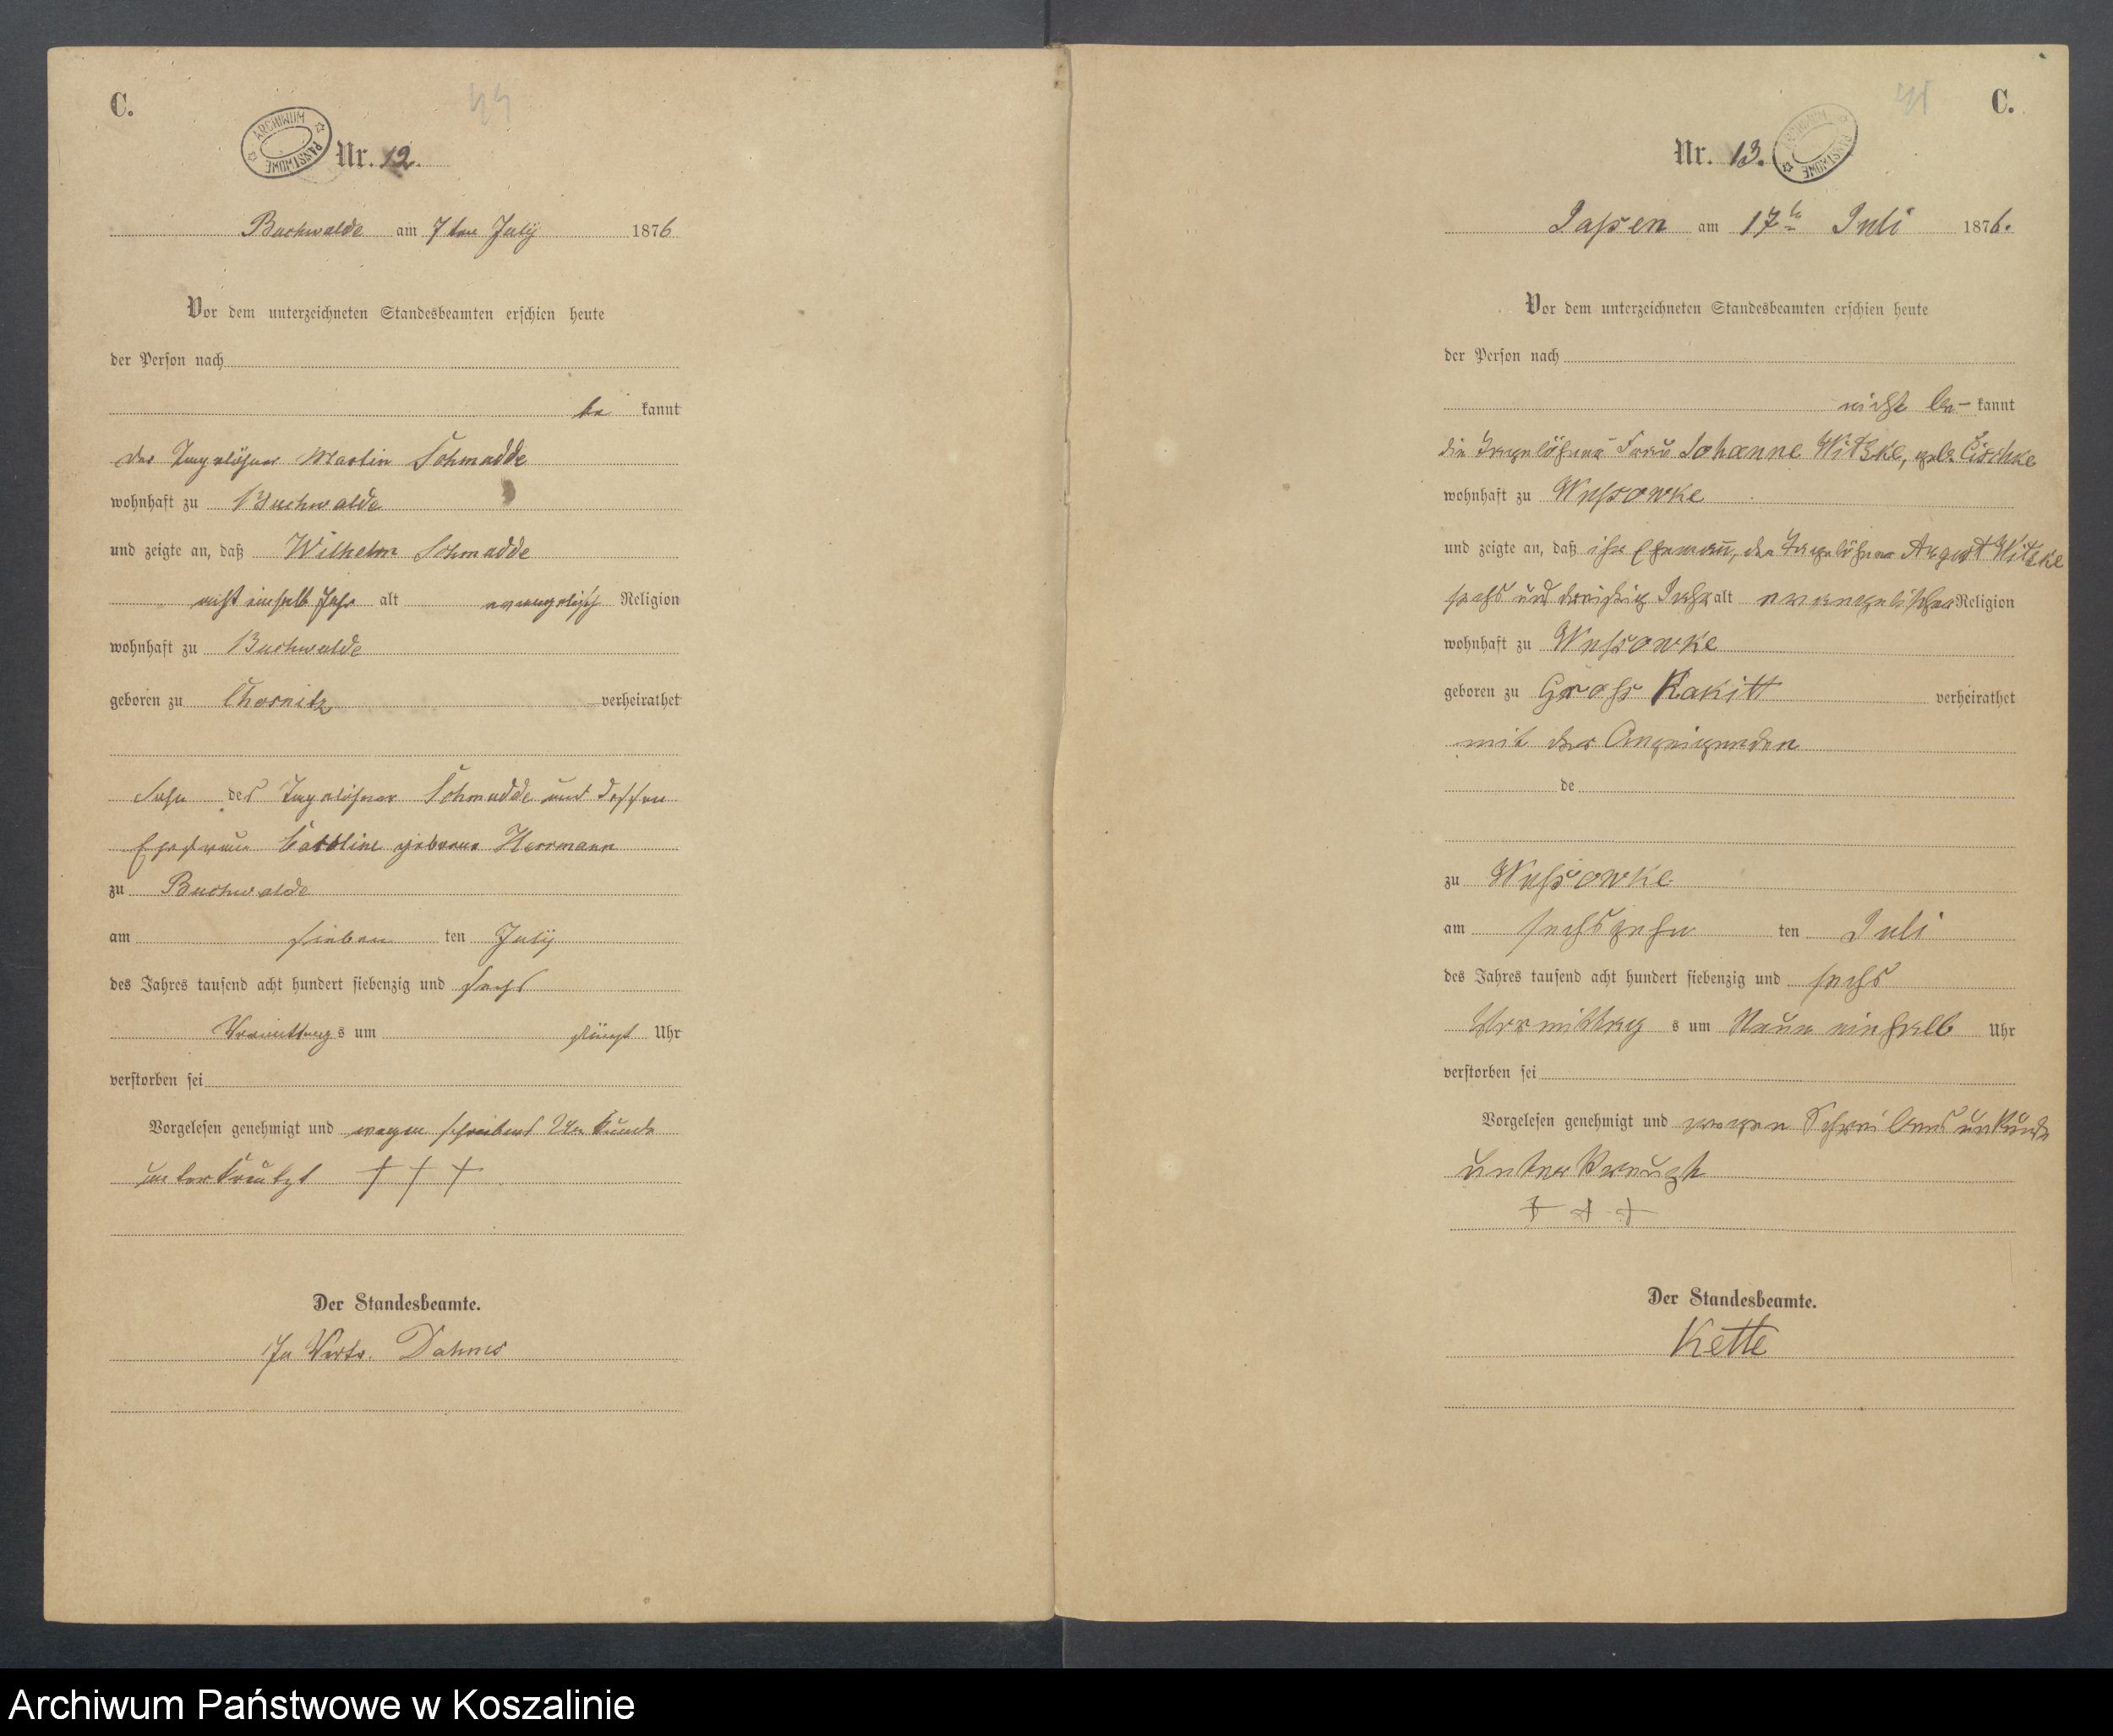 C.
44
ARCHIWUM PAŃSTWOWE
Nr. 12.
Buchwalde am 7ten July 1876
Vor dem unterzeichneten Standesbeamten erschien heute
der Person nach
be kannt
der Tagelöhner Martin Schmadde
wohnhaft zu Buchwalde
und zeigte an, daß Wilhelm Schmadde
einhalb Jahr alt evangelisch Religion
wohnhaft zu Buchwalde
geboren zu Chosnitz verheirathet
Sohn des Tagelöhner Schmadde und dessen
Ehefrau Caroline geborne Herrmann
zu Buchwalde
am sieben ten July
des Jahres tausend acht hundert siebenzig und sechs
Vormittags um fünf Uhr
verstorben sei
Vorgelesen genehmigt und wegen schreibens Unkunde
unterkreutzt † † †
Der Standesbeamte.
In Vertr. Dahms
C.
45
Nr. 13.
ARCHIWUM PAŃSTWOWE
Jassen am 17t Juli 1876.
Vor dem unterzeichneten Standesbeamten erschien heute
der Person nach
nicht be- kannt
die Tagelöhner Frau Johanne Witzke, geb. Cischke
wohnhaft zu Wussowke
und zeigte an, daß ihr Ehemann, der Tagelöhner August Witzke
sechs und dreißig Jahr alt evangelischer Religion
wohnhaft zu Wussowke
geboren zu Gross Rakitt verheirathet
mit der Anzeigenden
de
zu Wussowke
am sechszehn ten Juli
des Jahres tausend acht hundert siebenzig und sechs
Vormittag s um Neun einhalb Uhr
verstorben sei
Vorgelesen genehmigt und wegen Schreibensunkunde
unterkreuzt
+ + +
Der Standesbeamte.
Kette
Archiwum Państwowe w Koszalinie